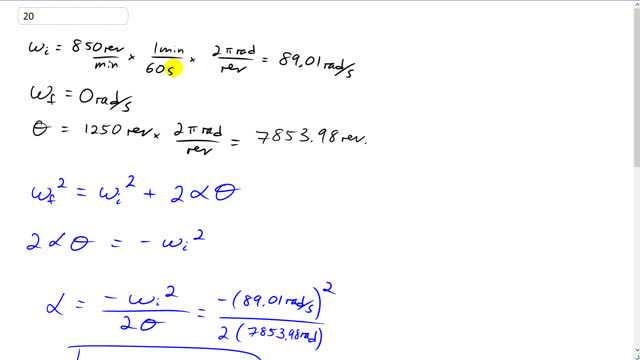 20
ωi = 850 rev/min × 1 min/60 s × 2π rad/rev = 89.01 rad/s
ωf = 0 rad/s
θ = 1250 rev × 2π rad/rev = 7853.98 rev.
ωf² = ωi² + 2αθ
2αθ = -ωi²
α = -ωi²/2θ = -(89.01 rad/s)²/2(7853.98 rad)